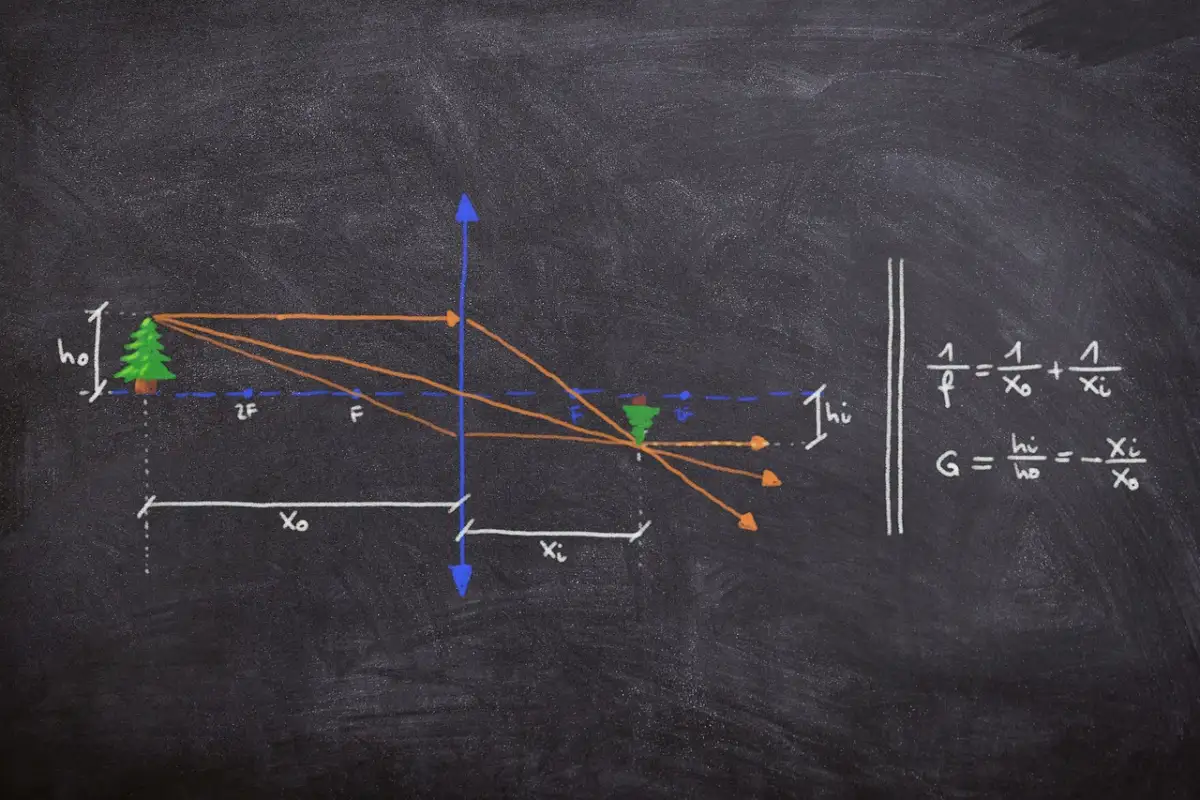 ho
2F
F
F
2F
hi
Xo
Xi
1/f = 1/Xo + 1/Xi
G = hi/ho = -Xi/Xo